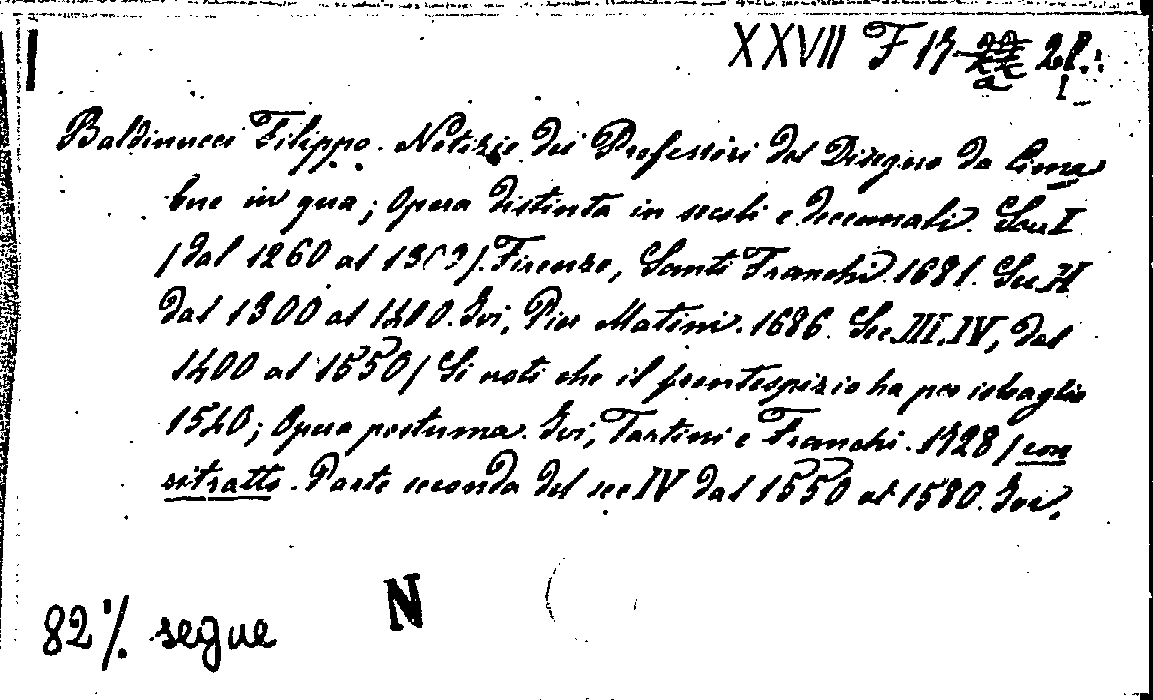 XXVII F 17 28.
Baldinucci Filippo. Notizie dei Professori del Disegno da Cima
bue in qua; Opera distinta in secoli e decennali. Sec. I
(dal 1260 al 1303). Firenze, Santi Franchi. 1681. Sec. II
dal 1300 al 1400. Ivi, Pier Matini. 1686. Sec. III. IV, dal
1400 al 1550 / Si noti che il frontespizio ha per isbaglio
1540; Opera postuma. Ivi, Tartini e Franchi. 1728 / con
ritratto. Parte seconda del sec IV dal 1550 al 1580. Ivi.
N
82% segue